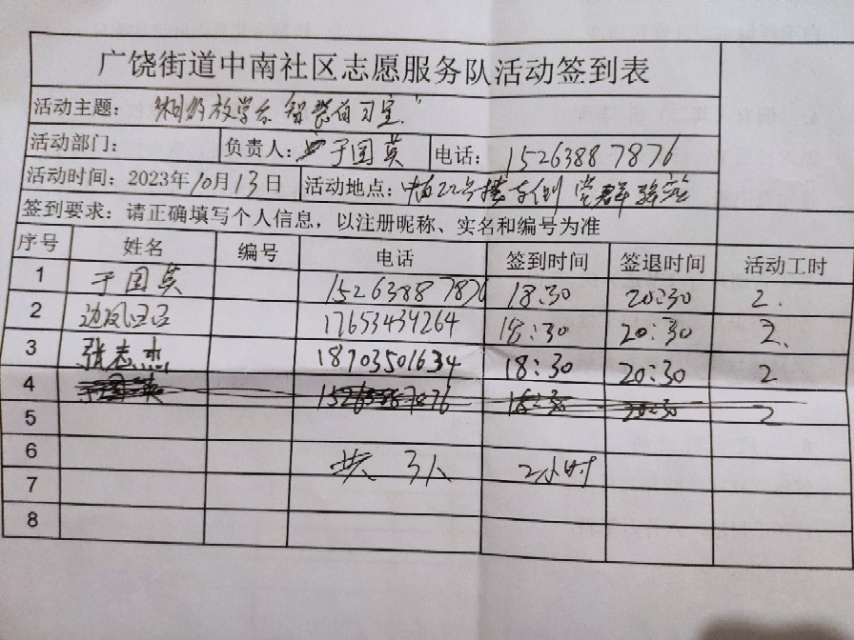 广饶街道中南社区志愿服务队活动签到表
活动主题: 放学后 智慧自习室
活动部门: 负责人: 于国英 电话: 15263887876
活动时间: 2023年10月13日 活动地点: 22号楼 党群驿站
签到要求: 请正确填写个人信息，以注册昵称、实名和编号为准
序号 姓名 编号 电话 签到时间 签退时间 活动工时
1 于国英 15263887876 18:30 20:30 2.
2 边凤 17653434264 18:30 20:30 2.
3 张志杰 18703501634 18:30 20:30 2
4 于国英 15263887876 18:30 20:30 2
5
6 共 3人 2小时
7
8